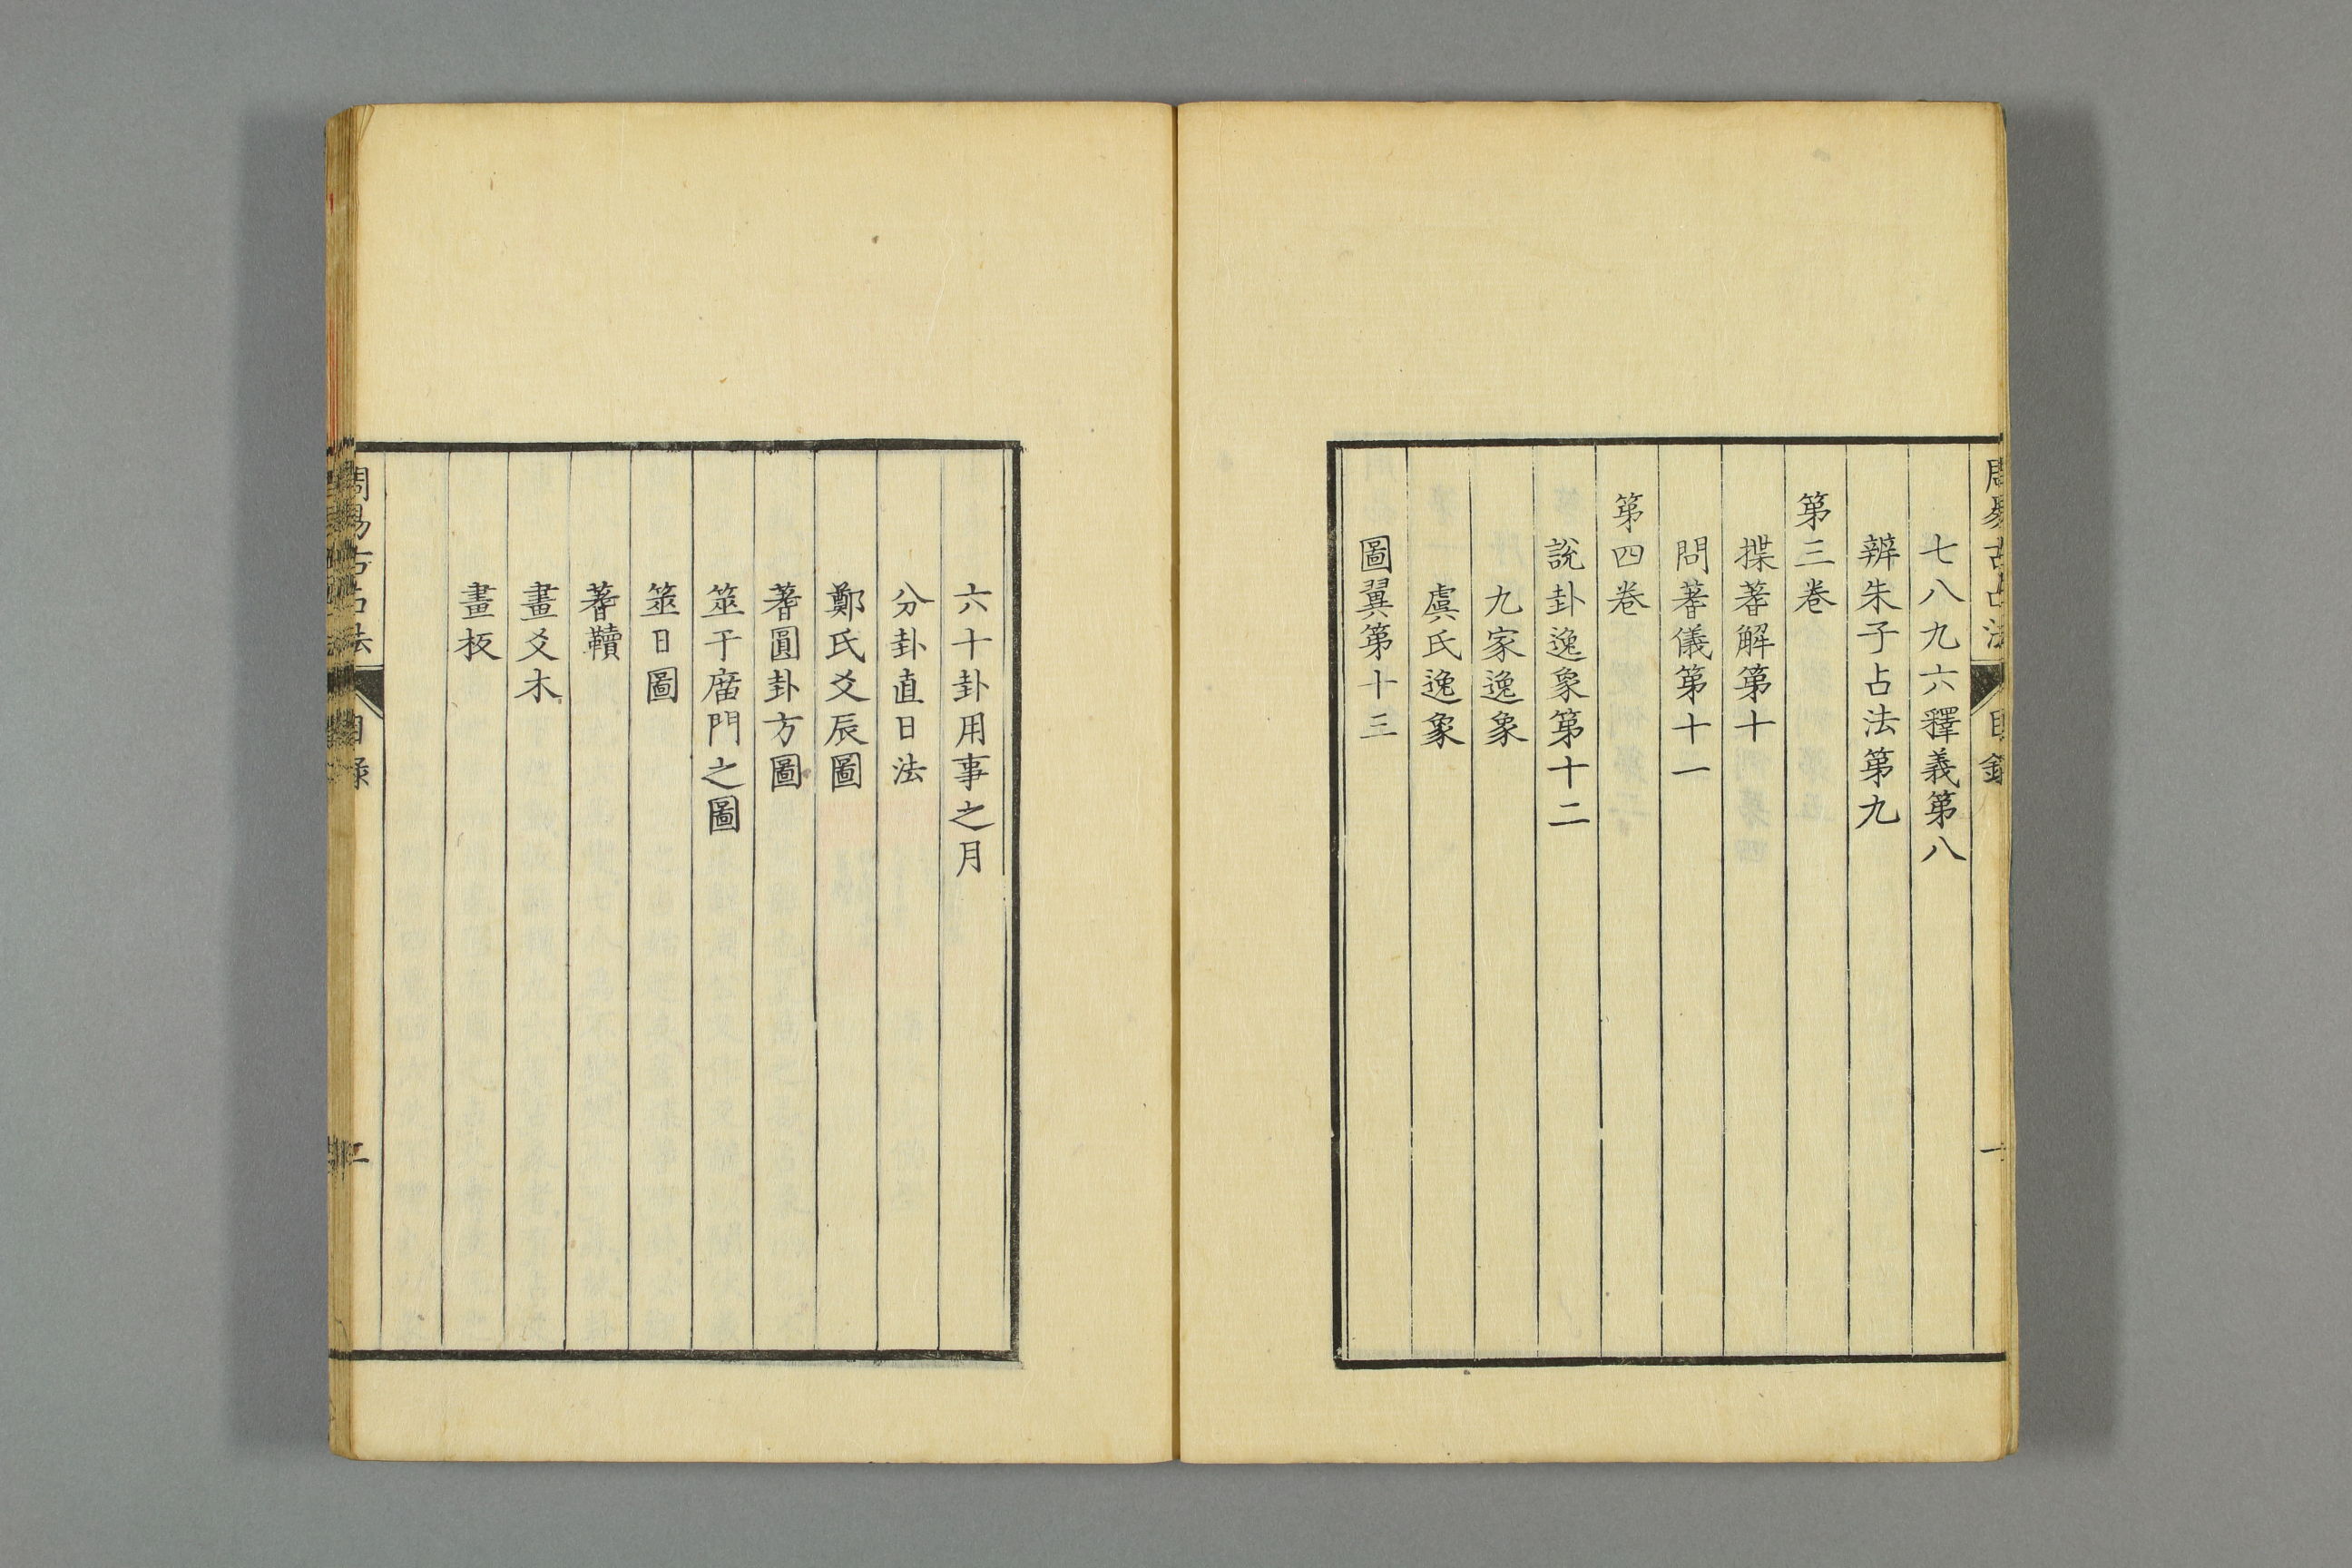 周易古占法 目錄 一
七八九六釋義第八
辨朱子占法第九
第三卷
揲蓍解第十
問蓍儀第十一
第四卷
說卦逸象第十二
九家逸象
虞氏逸象
圖翼第十三
六十卦用事之月
分卦直日法
鄭氏爻辰圖
蓍圓卦方圖
筮于庿門之圖
筮日圖
蓍韇
畫爻木
畫板
周易古占法 目錄 二